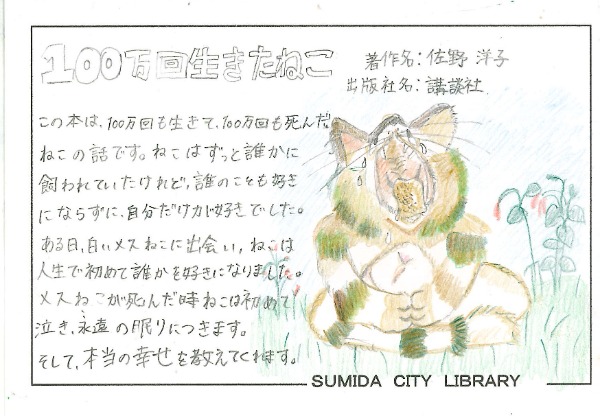 100万回生きたねこ
著作名：佐野 洋子
出版社名：講談社
この本は、100万回も生きて、100万回も死んだ
ねこの話です。ねこはずっと誰かに
飼われていたけれど、誰のことも好き
にならずに、自分だけが好きでした。
ある日、白いメスねこに出会い、ねこは
人生で初めて誰かを好きになりました。
メスねこが死んだ時ねこは初めて
泣き、永遠の眠りにつきます。
そして、本当の幸せを教えてくれます。
SUMIDA CITY LIBRARY